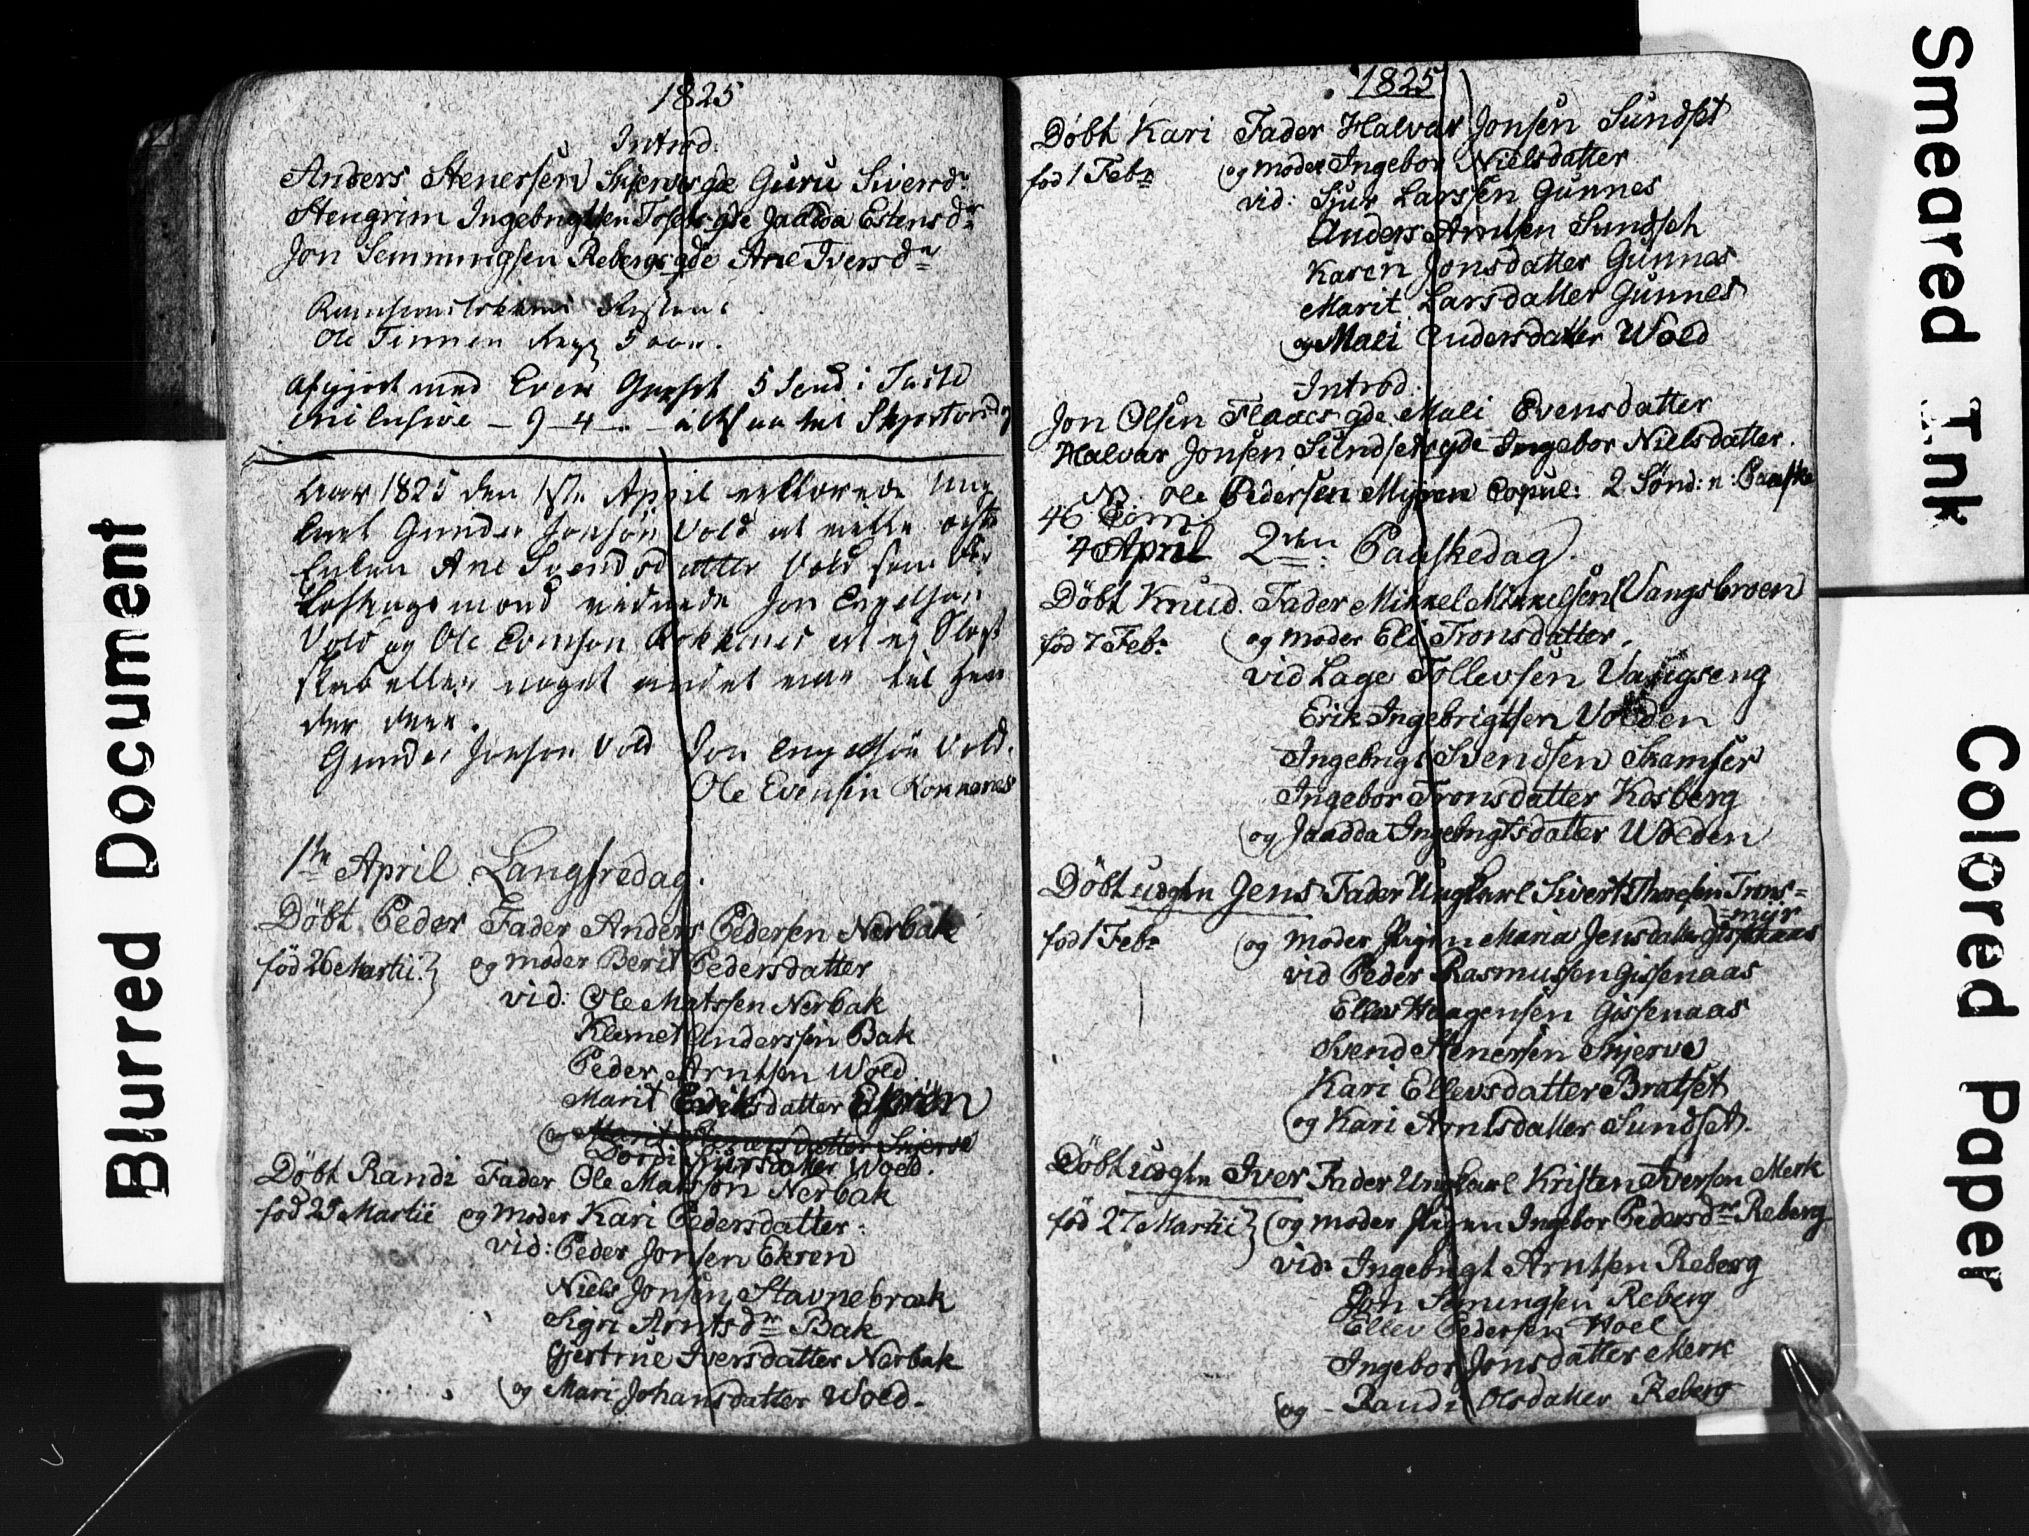 1825
Introd.
Anders Stenersen Skjerves gde Guru Siverrdr
Stengrim Ingebrigtsen Tosets gde Jaadda Estensdr
Jon Semmingsen Rebergs gde Ane Iversdr
Ole Tinnen
afgjort med Even 5 Sønd: i Faste
inclusive - 9 - 4 -
Aar 1825 den 1ste April erklærede Ung
karl Gunder Jonsøn Vold at ville ægte
Enken Ane Svendsdatter Vold som
Jon Engelsøn
Vold og Ole Evensøn Kokkenes at ej Slægt
skab eller noget andet var til hin
der derr.
Gunder Jonson Vold Jon Engelsøn Vold.
Ole Evensen Kokkenes
1ste April. Langfredag.
Døbt Peder Fader Anders Pedersen Nerbak
fød 26 Martii og Moder Berit Pedersdatter
vid: Ole Matssen Nerbak
Klemet Anderssen Bak
Peder Arntsen Wold
Marit Eriksdatter
og Marit Stenersdatter Skjerve
Dordi Sjursdatter Woeld.
Døbt Randi Fader Ole Matsøn Nerbak
fød 25 Martii og Moder Kari Pedersdatter:
vid: Peder Jonsen Ekren
Niels Jonsen Stavnebræk
Sigri Arntsdr Bak
Gjertrue Iversdatter Nerbak
og Mari Johansdatter Woeld.
1825
Døbt Kari Fader Halvar Jonsen Sundset
fød 1 Febr og moder Ingebor Nielsdatter
vid: Sjur Larssen Gunnes
Anders Arntsen Sundset
Karen Jonsdatter Gunnes
Marit Larsdatter Gunnes
og Mali Andersdatter Wold
Introd
Jon Olsen Flaaes gde Mali Evensdatter
Halvar Jonsen Sundsets gde Ingebor Nielsdatter.
N: Ole Pedersen Myren Copul: 2 Sønd: n: Paaske
46 Com:
4 April 2den Paaskedag.
Døbt Knud. Fader Mikkel Mikkelsen Vangsbroen
fød 7 Febr og moder Eli Tronsdatter.
vid Lage Tollevsen Vangseng
Erik Ingebrigtsen Volden
Ingebrigt Svendsen Skamfer
Ingebor Tronsdatter Kosberg
og Jaadda Ingebrigtsdatter Wolden
Døbt udgtn Jens Fader Ungkarl Sivert Thoresen Trons=
=myr
fød 1 Febr og moder Pigen Maria Jensdatter Gissenaas
vid Peder Rasmussen Gissenaas
Ellev Haagensen Gissenaas
Svend Stenersen Skjerve
Kari Ellevsdatter Bratset
og Kari Arntsdatter Sundset.
Døbt udgtn Iver Fader Ungkarl Kristen Iversen Merk
fød 27 Martii og moder Pigen Ingebor Pedersdr Reberg
vid: Ingebrigt Arntsen Reberg
Jon Semingsen Reberg
Ellev Pedersen Hoel
Ingebor Jonsdatter Merk
og - Randi Olsdatter Reberg
Blurred Document
Smeared Ink
Colored Paper